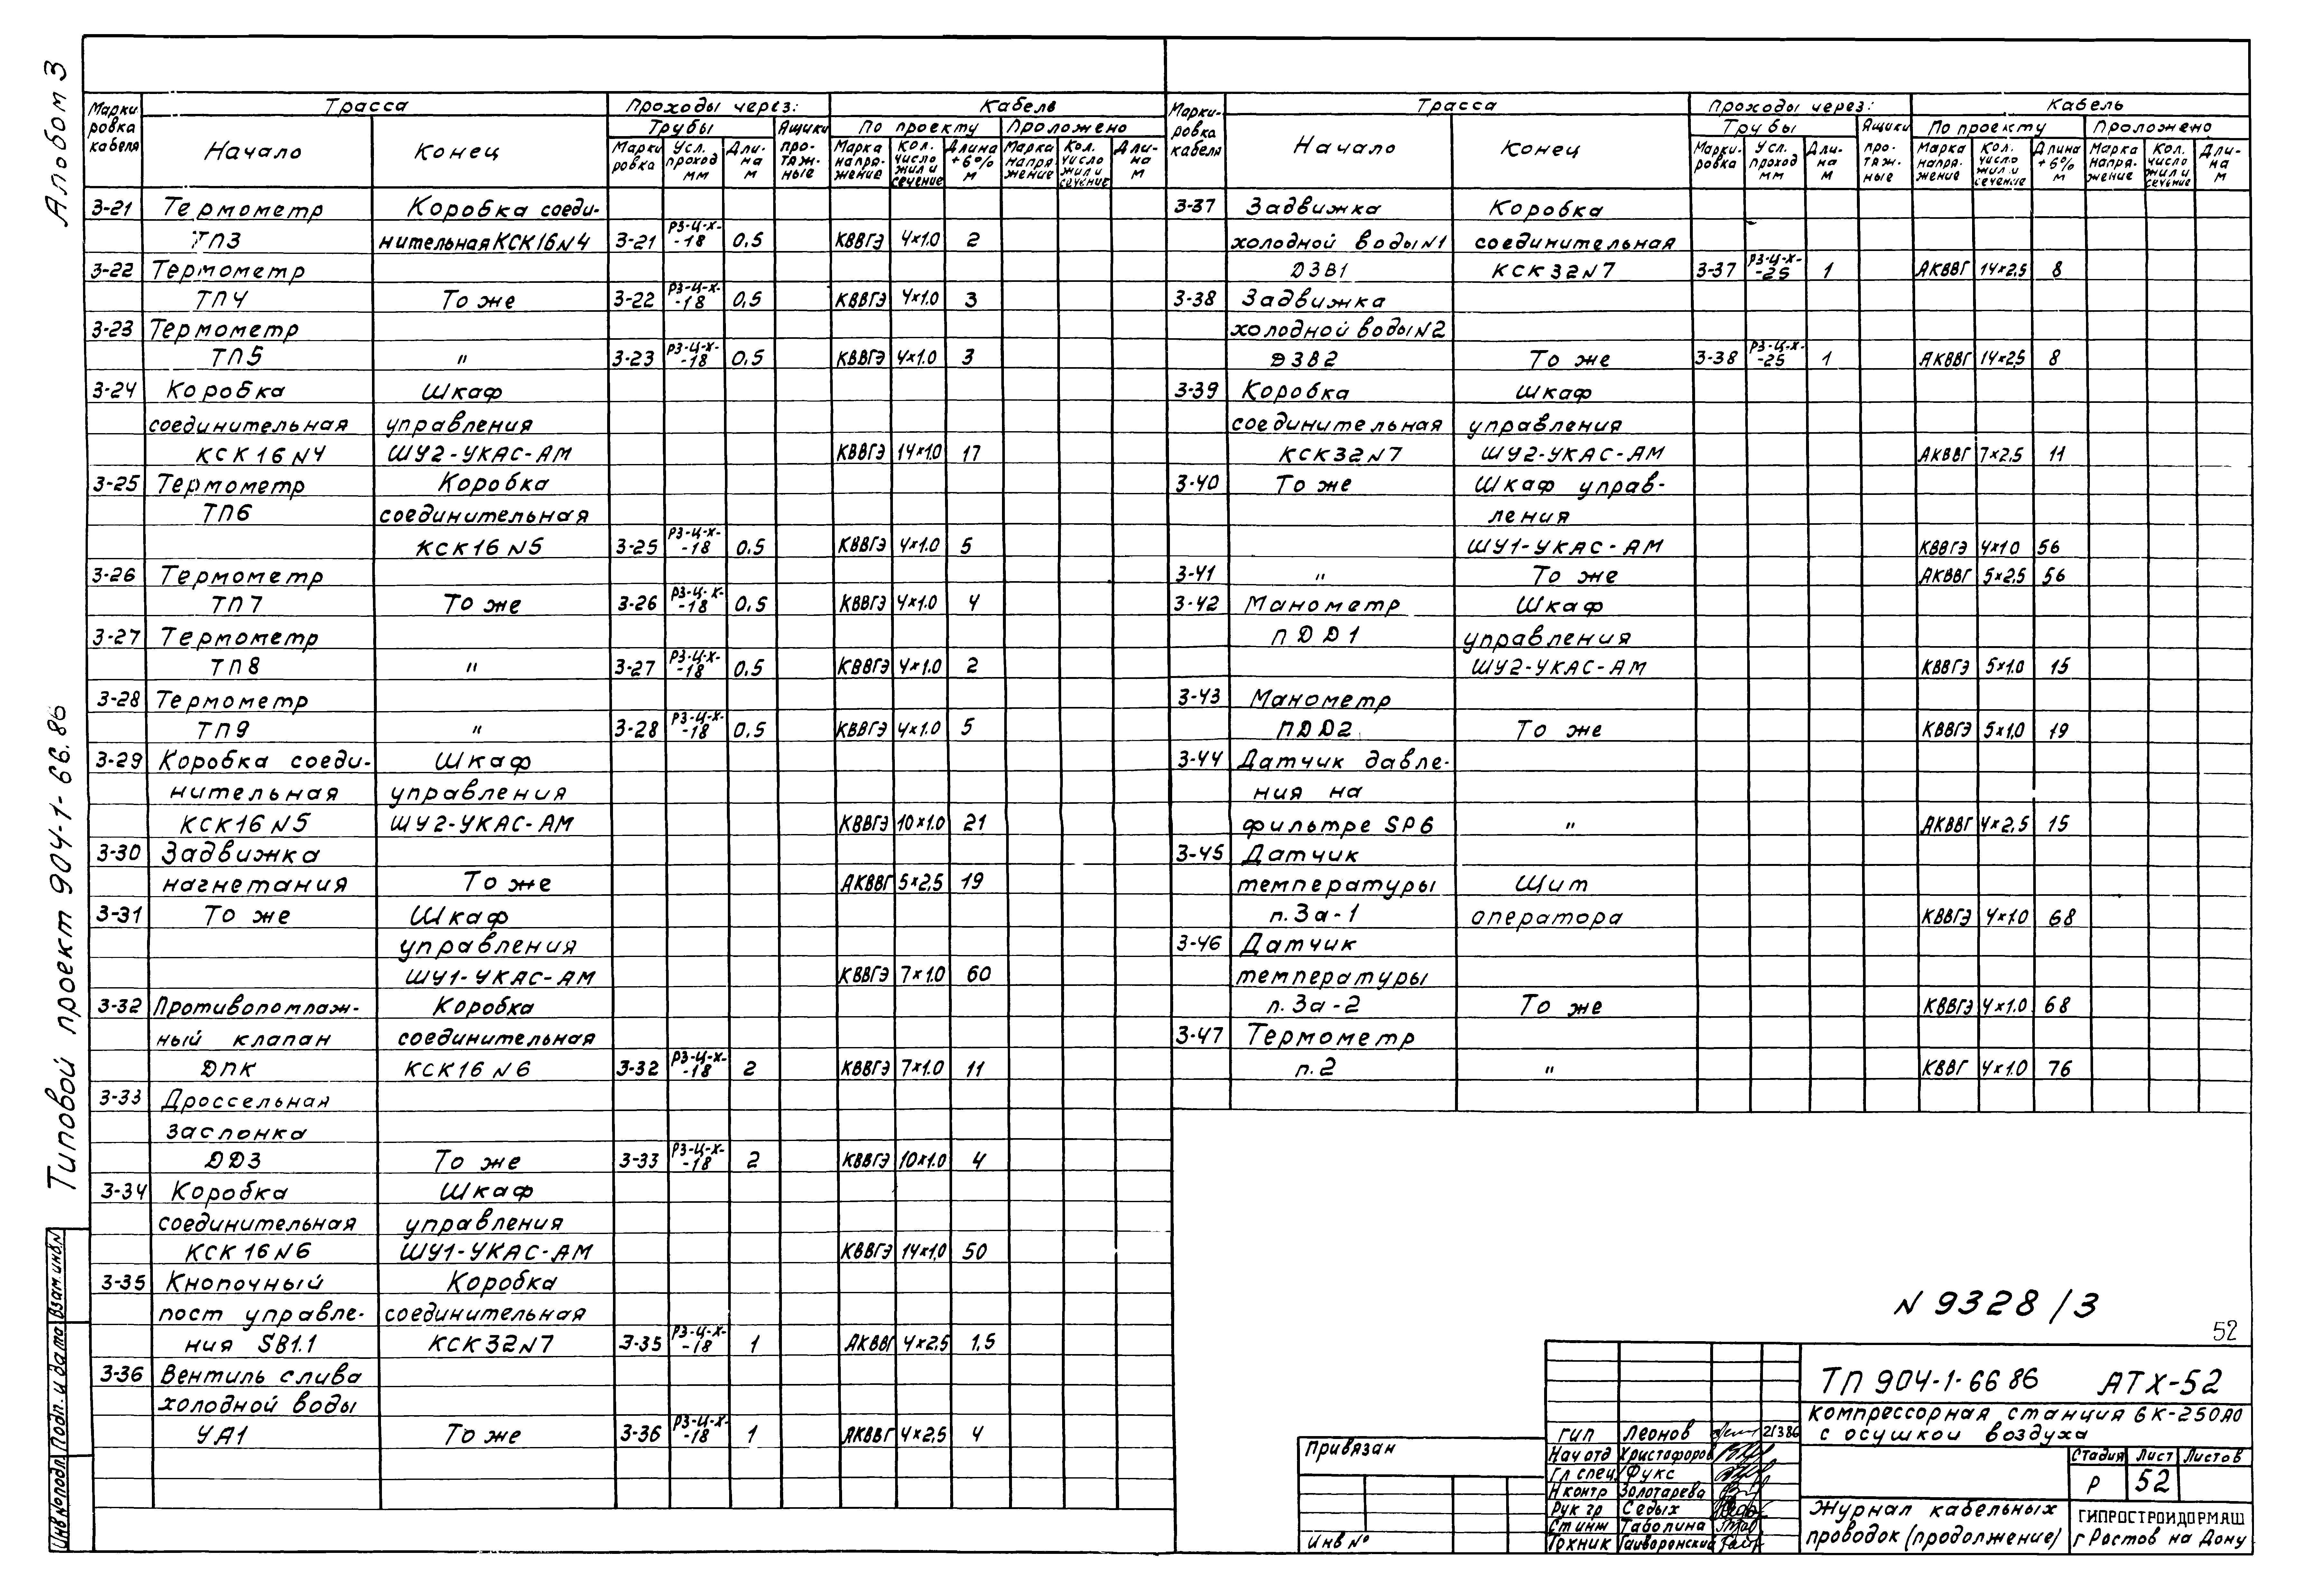 Альбом 3
Типовой проект 904-1-66.86
Взам.инв.N
Подп. и дата
Инв.Nоподл.
Марки ровка кабеля | Трасса | Проходы через: | Кабель
Начало | Конец | Трубы | Ящики про- тяж- ные | По проекту | Проложено
Марки ровка | Усл. проход мм | Дли- на м | Марка напря- жение | Кол. число жил и сечение | Длина +6% м | Марка напря жение | Кол. число жил и сечение | Дли- на м
3-21 Термометр Коробка соеди-
ТП3 нительная КСК16N4 3-21 РЗ-Ц-Х--18 0,5 КВВГЭ 4×1.0 2
3-22 Термометр
ТП4 То же 3-22 РЗ-Ц-Х--18 0,5 КВВГЭ 4×1.0 3
3-23 Термометр
ТП5 " 3-23 РЗ-Ц-Х--18 0,5 КВВГЭ 4×1.0 3
3-24 Коробка Шкаф
соединительная управления
КСК16N4 ШУ2-УКАС-АМ КВВГЭ 14×1.0 17
3-25 Термометр Коробка
ТП6 соединительная
КСК16N5 3-25 РЗ-Ц-Х--18 0,5 КВВГЭ 4×1.0 5
3-26 Термометр
ТП7 То же 3-26 РЗ-Ц-Х--18 0,5 КВВГЭ 4×1.0 4
3-27 Термометр
ТП8 " 3-27 РЗ-Ц-Х--18 0,5 КВВГЭ 4×1.0 2
3-28 Термометр
ТП9 " 3-28 РЗ-Ц-Х--18 0,5 КВВГЭ 4×1.0 5
3-29 Коробка соеди- Шкаф
нительная управления
КСК16N5 ШУ2-УКАС-АМ КВВГЭ 10×1.0 21
3-30 Задвижка
нагнетания То же АКВВГ 5×2,5 19
3-31 То же Шкаф
управления
ШУ1-УКАС-АМ КВВГЭ 7×1.0 60
3-32 Противопомпаж- Коробка
ный клапан соединительная
ДПК КСК16N6 3-32 РЗ-Ц-Х--18 2 КВВГЭ 7×1.0 11
3-33 Дроссельная
заслонка
ДДЗ То же 3-33 РЗ-Ц-Х--18 2 КВВГЭ 10×1.0 4
3-34 Коробка Шкаф
соединительная управления
КСК16N6 ШУ1-УКАС-АМ КВВГЭ 14×1,0 50
3-35 Кнопочный Коробка
пост управле- соединительная
ния SB1.1 КСК32N7 3-35 РЗ-Ц-Х--18 1 АКВВГ 4×2,5 1,5
3-36 Вентиль слива
холодной воды
УА1 То же 3-36 РЗ-Ц-Х--18 1 АКВВГ 4×2,5 4
Марки- ровка кабеля | Трасса | Проходы через: | Кабель
Начало | Конец | Трубы | Ящики про- тяж- ные | По проекту | Проложено
Марки- ровка | Усл. проход мм | Дли- на м | Марка напря- жение | Кол. число жил и сечение | Длина +6% м | Марка напря- жение | Кол. число жил и сечение | Дли- на м
3-37 Задвижка Коробка
холодной воды N1 соединительная
ДЗВ1 КСК32N7 3-37 РЗ-Ц-Х--25 1 АКВВГ 14×2,5 8
3-38 Задвижка
холодной воды N2
ДЗВ2 То же 3-38 РЗ-Ц-Х--25 1 АКВВГ 14×2,5 8
3-39 Коробка Шкаф
соединительная управления
КСК32N7 ШУ2-УКАС-АМ АКВВГ 7×2.5 11
3-40 То же Шкаф управ-
ления
ШУ1-УКАС-АМ КВВГЭ 4×1.0 56
3-41 " То же АКВВГ 5×2,5 56
3-42 Манометр Шкаф
ПДД1 управления
ШУ2-УКАС-АМ КВВГЭ 5×1.0 15
3-43 Манометр
ПДД2 То же КВВГЭ 5×1,0 19
3-44 Датчик давле-
ния на
фильтре SP6 " АКВВГ 4×2,5 15
3-45 Датчик
температуры Щит
п. 3а-1 оператора КВВГЭ 4×1.0 68
3-46 Датчик
температуры
п. 3а-2 То же КВВГЭ 4×1.0 68
3-47 Термометр
п. 2 " КВВГ 4×1.0 76
N 9328/3
52
ТП 904-1-66 86 АТХ-52
Компрессорная станция 6К-250АО
с осушкой воздуха
Стадия Лист Листов
Р 52
Журнал кабельных
проводок (продолжение)
ГИПРОСТРОЙДОРМАШ
г Ростов на Дону
ГИП Леонов 21386
Нач отд Христофоров
Гл спец Фукс
Н контр Золотарева
Рук гр Седых
Ст инж Таболина
Техник Гайворонский
Привязан
Инв Nо